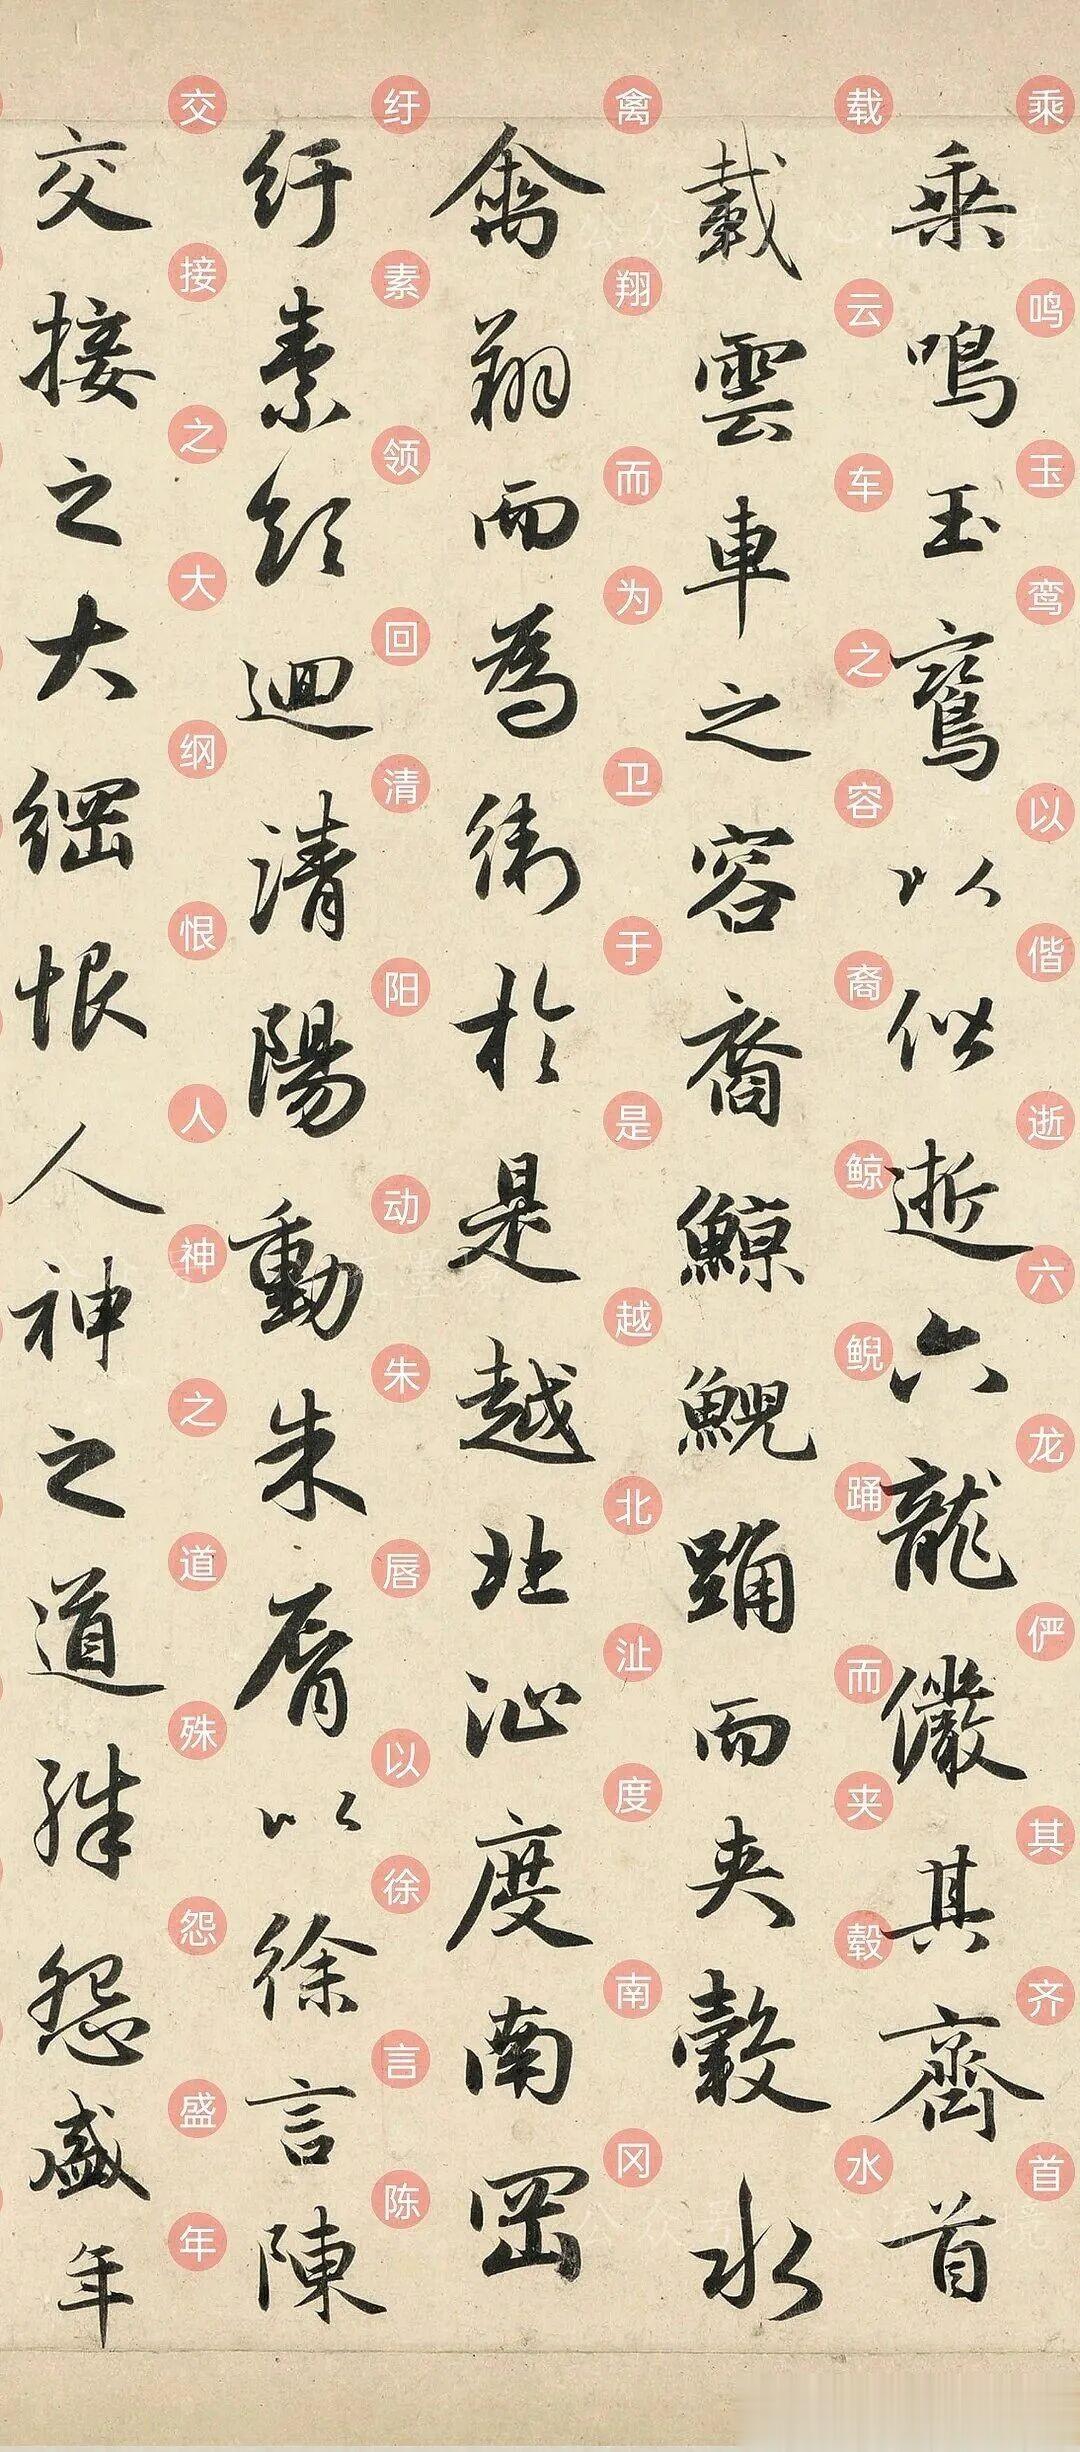 乘鸣玉鸾以偕逝六龙俨其齐首
乘鳴玉鸞以偕逝六龍儼其齊首
载云车之容裔鲸鲵踊而夹毂水
載雲車之容裔鯨鯢踊而夾轂水
禽翔而为卫于是越北沚度南冈
禽翔而為衛於是越北沚度南岡
纡素领回清阳动朱唇以徐言陈
紆素領迴清陽動朱脣以徐言陳
交接之大纲恨人神之道殊怨盛年
交接之大綱恨人神之道殊怨盛年